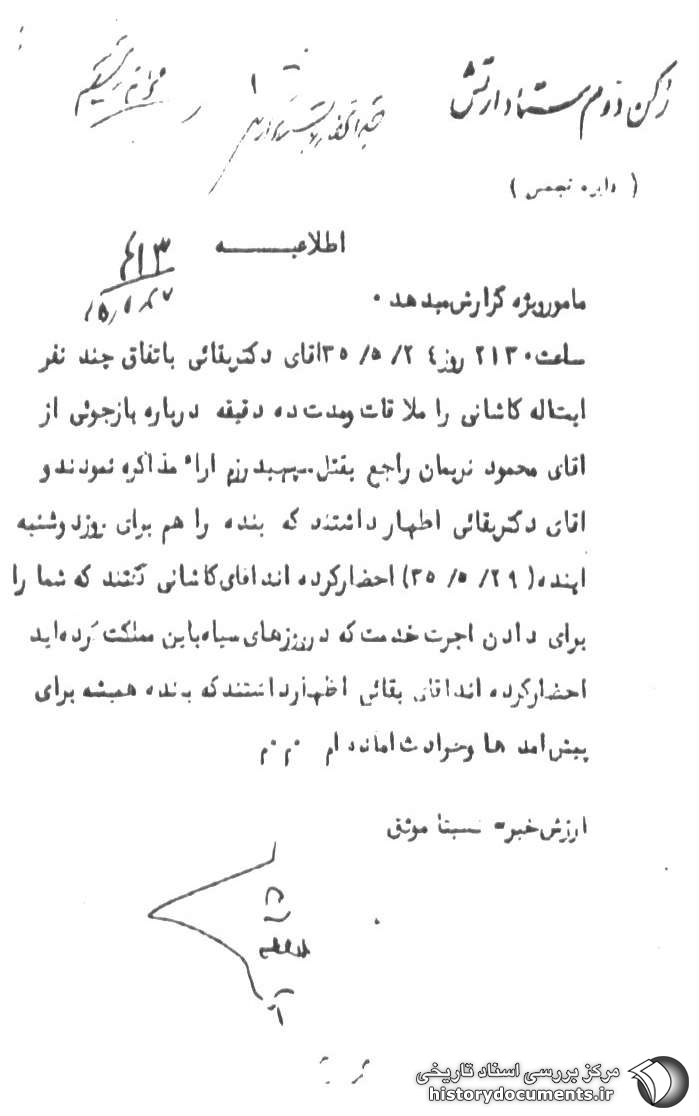 رکن دوم ستاد ارتش
( دایره تجسس )
اطلاعیـــــــه
مامورویژه گزارش میدهد ۰
ساعت ۲۱۳۰ روز ۲۴ /۵ /۳۵ اقای دکتربقائی باتفاق چند نفر
ایتاله کاشانی را ملاقات ومدت ده دقیقه درباره بازجوئی از
اقای محمود نریمان راجع بقتل سپهبد رزم ارا مذاکره نمودند و
اقای دکتربقائی اظهار داشتند که بنده را هم برای روزد وشنبه
اینده (۲۹ /۵ /۳۵) احضارکرده انداقای کاشانی گفتند که شما را
برای دادن اجرت خدمت که درروزهای سیاه باین مملکت کرده اید
احضارکرده انداقای بقائی اظهارداشتندکه بنده همیشه برای
پیش امد ها وحوادث اماده ام م م
ارزش خبر= نسبتا موثق
مرکز بررسی اسناد تاریخی
historydocuments.ir